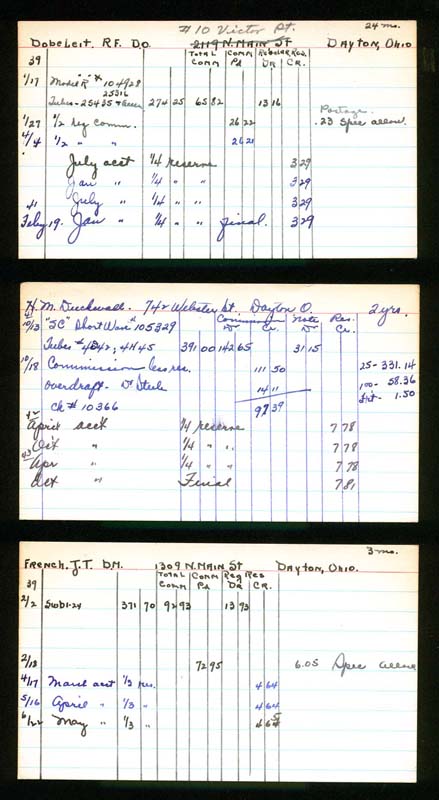 #10 Victor Pt. 24 mo.
Dobeleit, R.F. D.O. 2119 N. Main St Dayton, Ohio
Total Comm Comm Pd Regular Res. Dr Cr.
39
1/17 Model "R" # 104928
25316
Tubes - 25435 274 25 65 82 13 16
Postage
1/27 1/2 reg comm. 26 22 .23 Spec allow.
4/4 1/2 " " 26 21
July acct 1/4 reserve 3 29
Jan " 1/4 " " 3 29
41 July " 1/4 " " 3 29
Feby 19. Jan " 1/4 " " final. 3 29
H. M. Duckwall. 742 Webster St. Dayton O. 2 yrs.
Commission Dr Cr. Note Dr Res. Cr.
10/13 "SC" Short Wave # 105329
Tubes # 4242; 4H45 391 00 142 65 31 15
10/18 Commission less res. 111 50 25- 331.14
overdraft - Dr Steele 14 11 100- 58.36
Ck # 10366 97 39 Int- 1.50
42 April acct 1/4 reserve 7 78
Oct " 1/4 " " 7 78
43 Apr " 1/4 " " 7 78
Oct " Final 7 81
3 mo.
French, J.T. DM. 1309 N. Main St Dayton, Ohio.
Total Comm Comm Pd Reg Dr Res Cr.
39
2/2 SWD1-24 371 70 92 93 13 93
2/18 72 95 6.05 Spec allow
4/17 March acct 1/3 res. 4 64
5/16 April " 1/3 " 4 64
6/22 May " 1/3 " 4 65